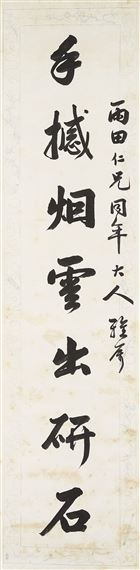 雨田仁兄同年大人雅屬
手撼烟雲出研石